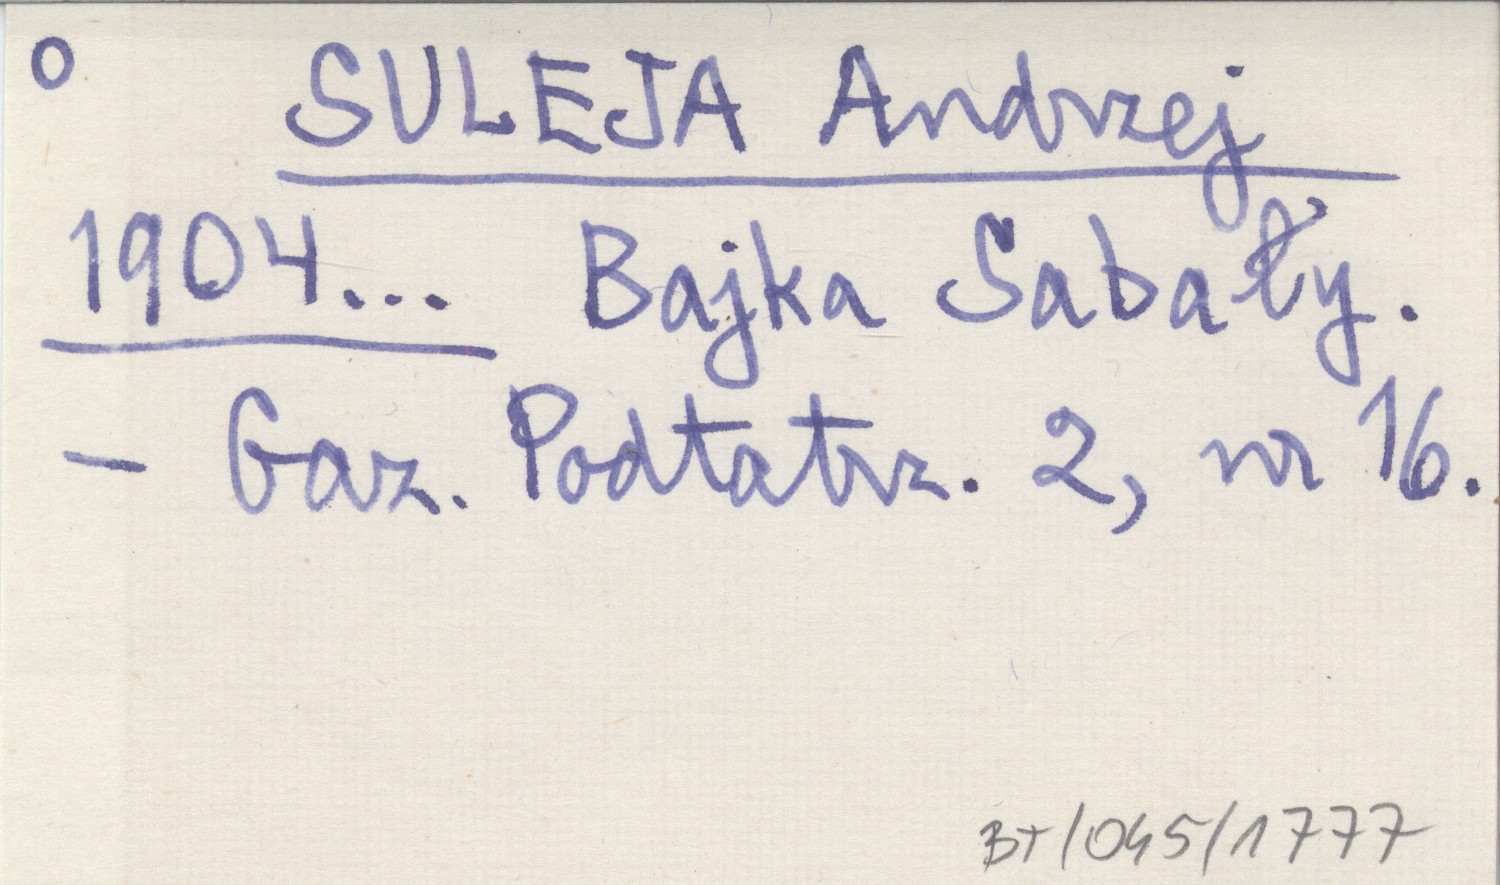 o SULEJA Andrzej
1904... Bajka Sabały.
- Gaz. Podtatrz. 2, nr 16.
BT/045/1777